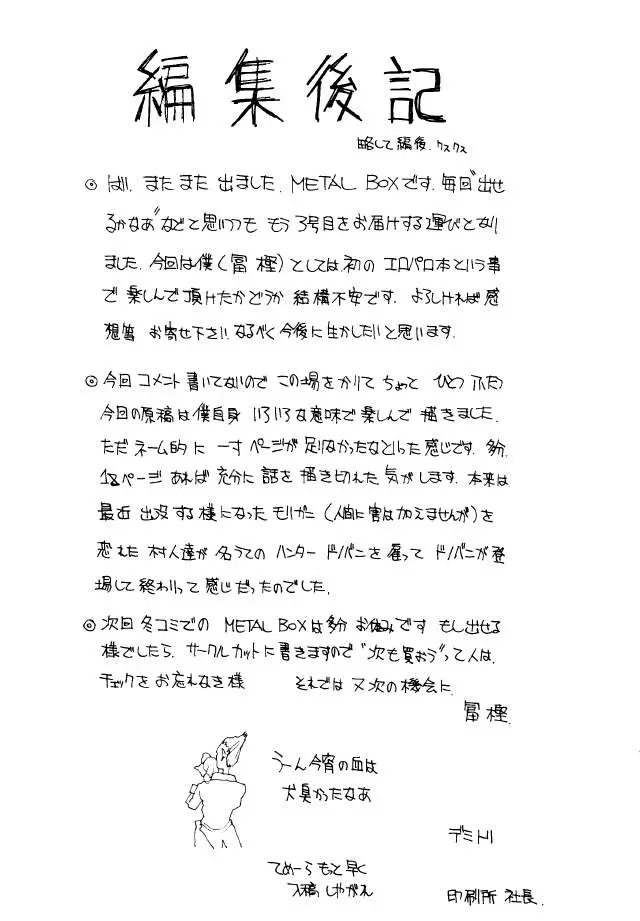 編集後記
略して編後.クスクス
◎ はい.またまた出ました.METAL BOXです.毎回"出せ
るかなあ"などと思いつつも もう3号目をお届けする運びとなり
ました.今回は僕(冨樫)としては.初の エロパロ本という事
で 楽しんで頂けたかどうか 結構不安です. よろしければ感
想等 お寄せ下さい.なるべく今後に生かしたいと思います.
◎ 今回コメント書いてないので この場をかりて ちょっと ひとつ ふたつ
今回の原稿は僕自身 いろいろな意味で楽しんで描きました.
ただネーム的に 一寸ページが足りなかったなといった感じです. 多分.
18ページあれば充分に話を描き切れた気がします.本来は
最近出没する様になったモリガン(人間に害は加えませんが)を
恐れた村人達が 名うてのハンター ドノバンを雇って ドノバンが登
場して終わりって感じだったのでした.
◎ 次回冬コミでの METAL BOXは多分お休みです もし出せる
様でしたら. サークルカットに書きますので"次も買おう"って人は.
チェックをお忘れなき様 それでは又次の機会に.
冨樫.
うーん今宵の血は
犬臭かったなあ
デミトリ
てめーらもっと早く
入稿しやがれ
印刷所 社長.